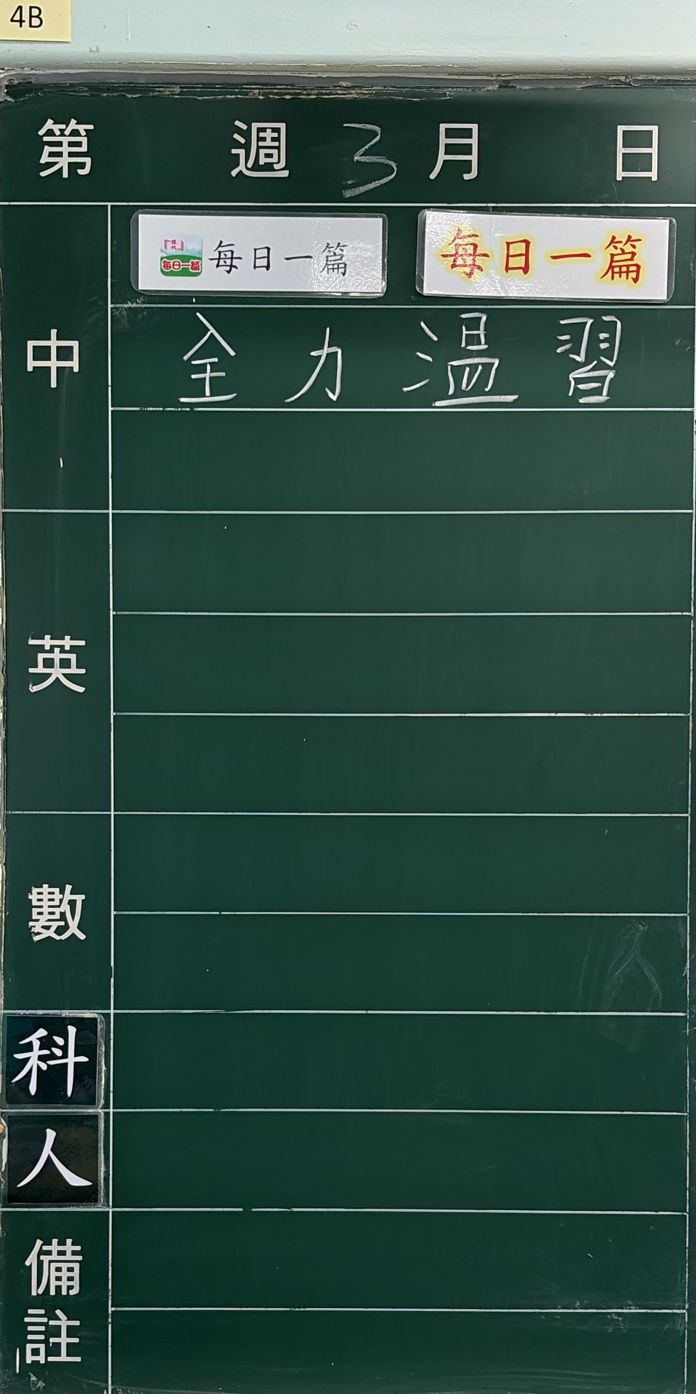 4B
第 週 3 月 日
每日一篇 每日一篇 每日一篇
中
全力溫習
英
數
科
人
備註